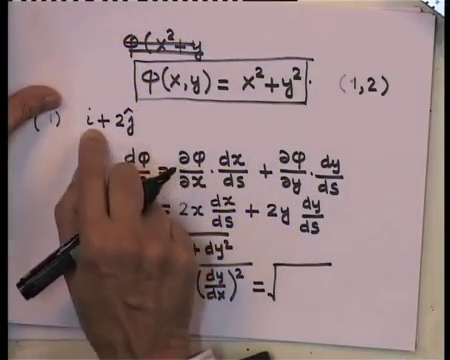 φ(x²+y
φ(x,y) = x²+y². (1,2)
(1) i+2ĵ
dφ = ∂φ/∂x · dx/ds + ∂φ/∂y · dy/ds
= 2x dx/ds + 2y dy/ds
+ dy²
(dy/dx)² = √